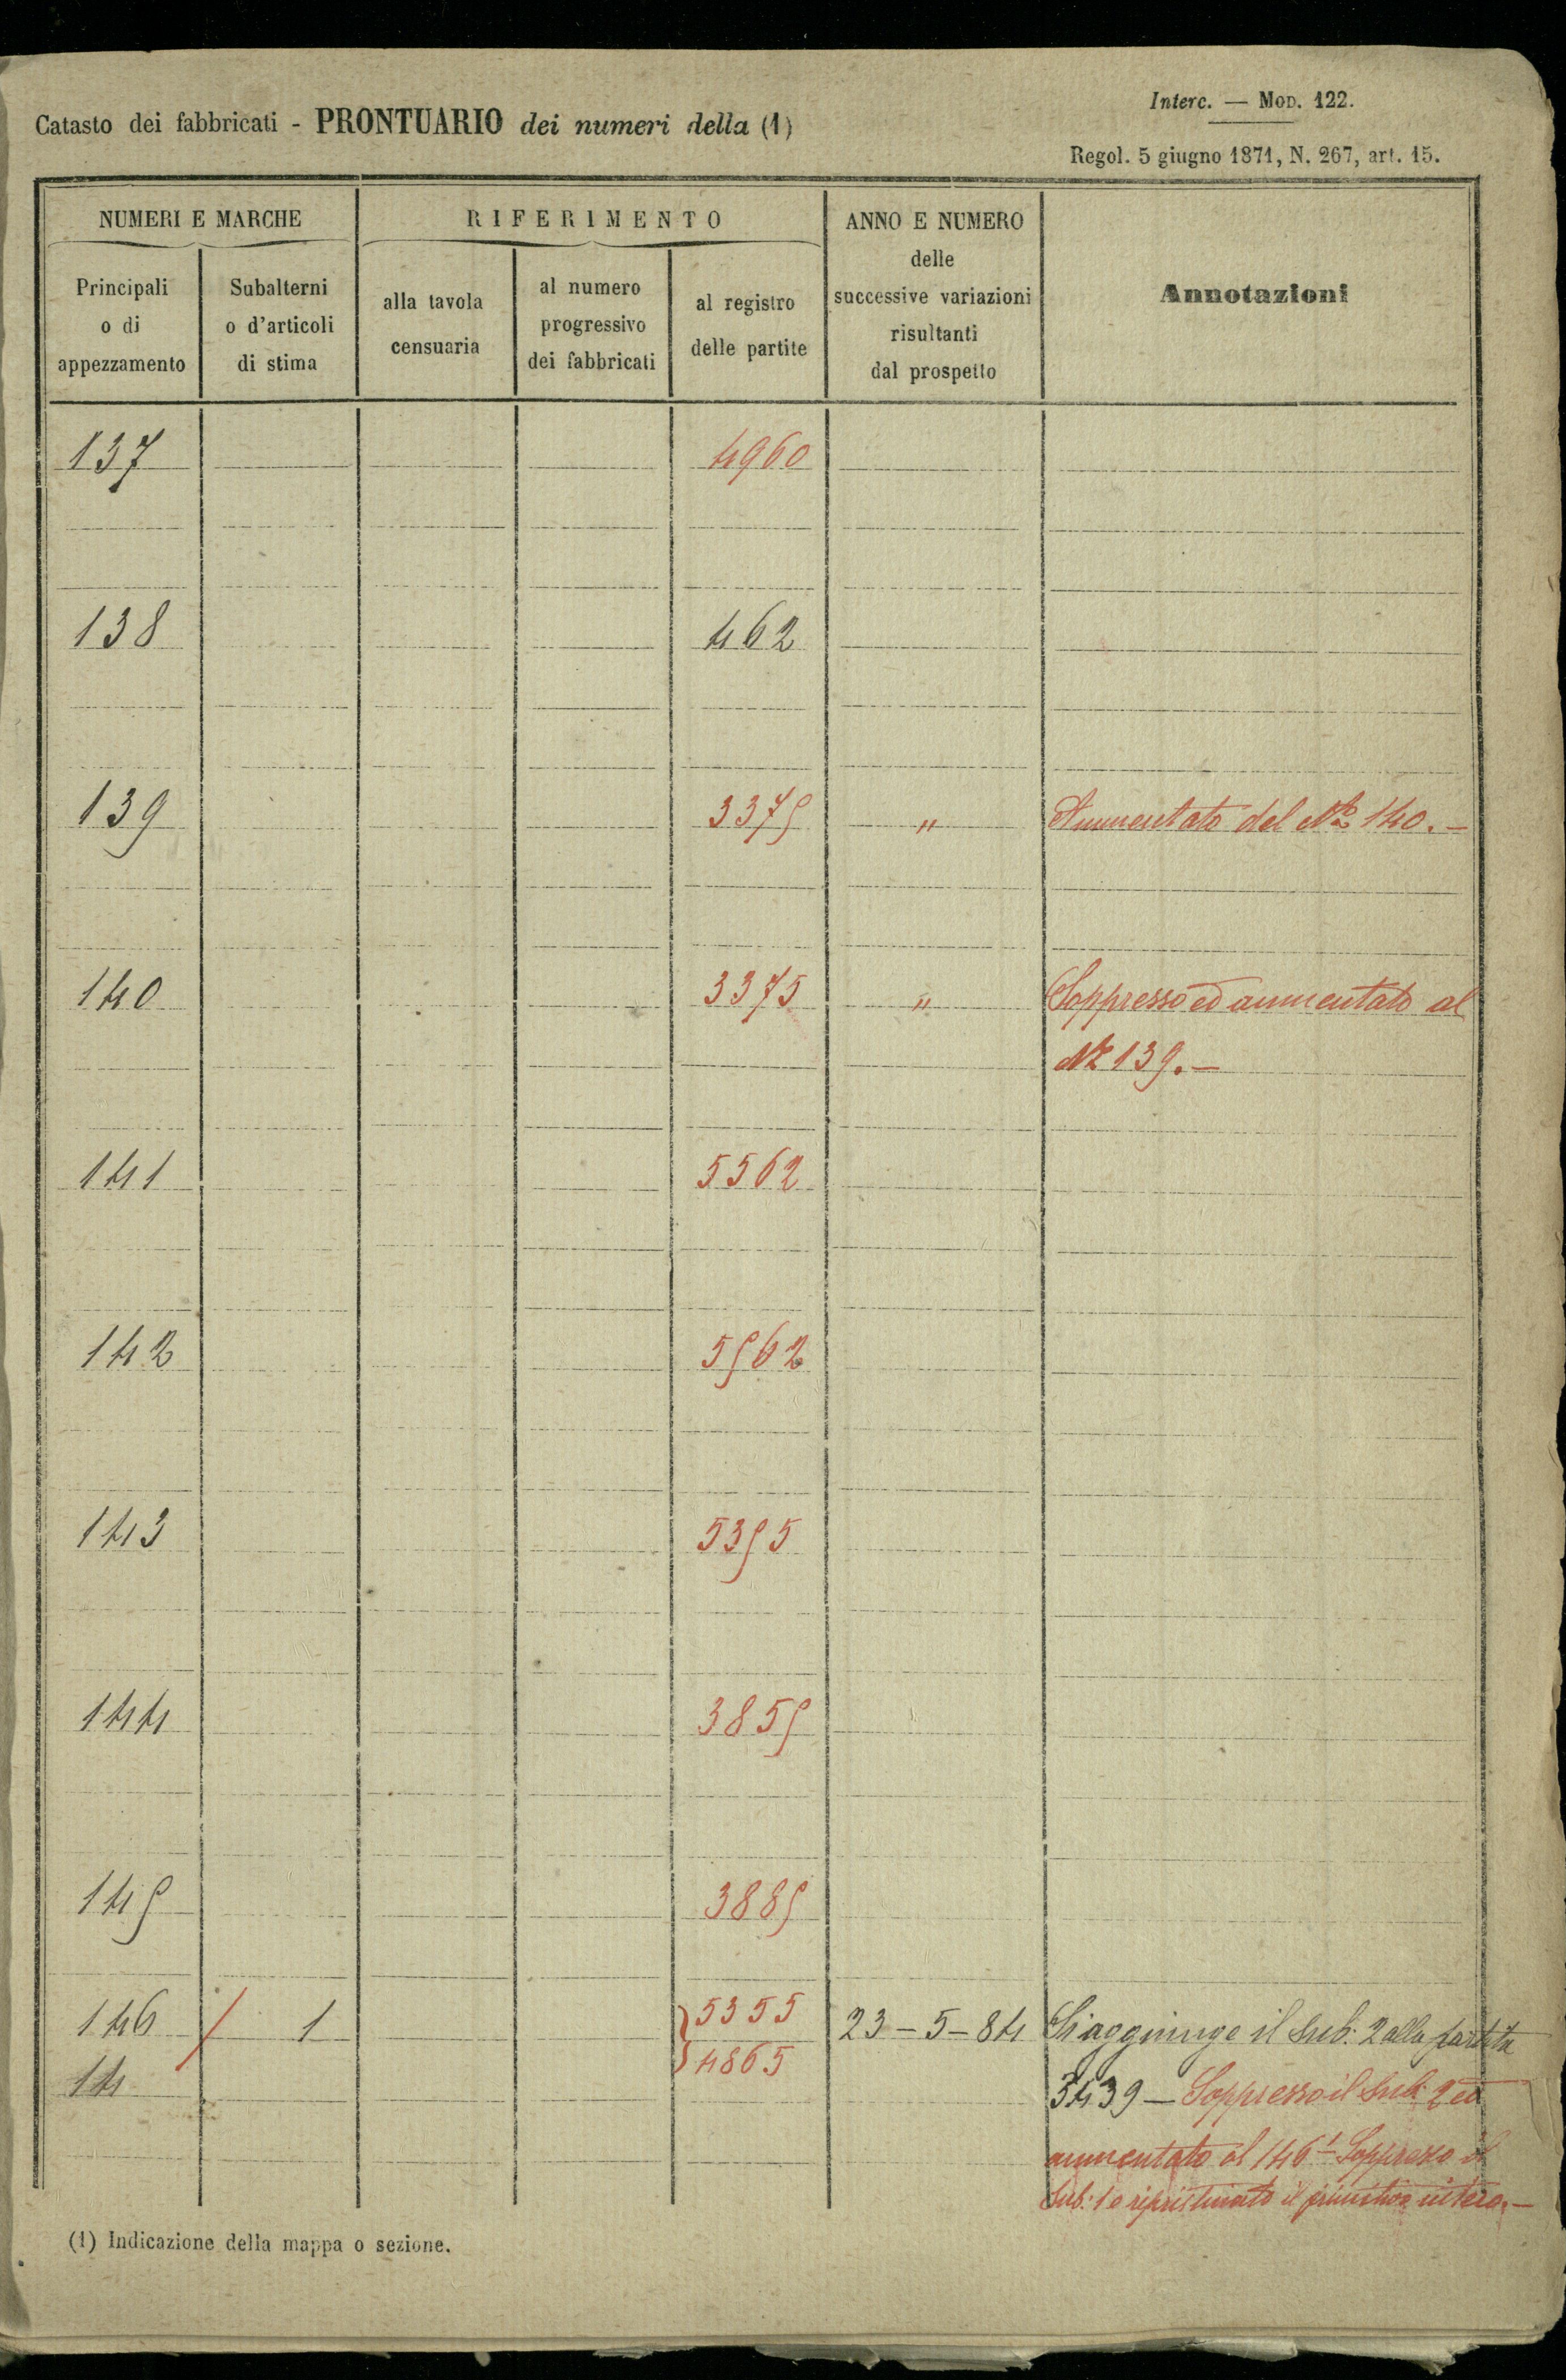 Interc. — Mod. 122.
Catasto dei fabbricati - PRONTUARIO dei numeri della (1)
Regol. 5 giugno 1871, N. 267, art. 15.
NUMERI E MARCHE RIFERIMENTO ANNO E NUMERO delle successive variazioni risultanti dal prospetto Annotazioni
Principali o di appezzamento Subalterni o d'articoli di stima alla tavola censuaria al numero progressivo dei fabbricati al registro delle partite
137 4960
138 462
139 3375 " Aumentato del No 140.—
140 3375 " Soppresso ed aumentato al
No 139.—
141 5562
142 5562
143 5355
144 3855
145 3885
146 / 1 5355 23-5-84 Si aggiunge il sub: 2 alla partita
14 4865 3439 — Soppresso il sub: 2 ed
aumentato al 146 1 Soppresso il
sub: 1 e ripristinato il primitivo intero.—
(1) Indicazione della mappa o sezione.